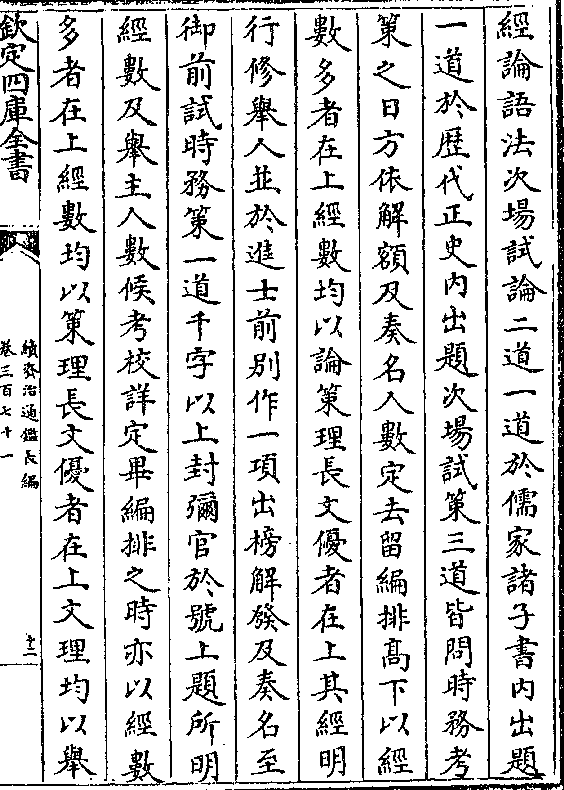 經論語法次場試論二道一道於儒家諸子書内出題
一道於歴代正史内出題次場試策三道皆問時務考
策之日方依解額及奏名人數定去留編排髙下以經
數多者在上經數均以論策理長文優者在上其經明
行修舉人並於進士前别作一項出榜解發及奏名至
御前試時務策一道千字以上封彌官於號上題所明
經數及舉主人數候考校詳定畢編排之時亦以經數
多者在上經數均以策理長文優者在上文理均以舉
欽定四庫全書
續資治通鑑長編
卷三百七十一
十二